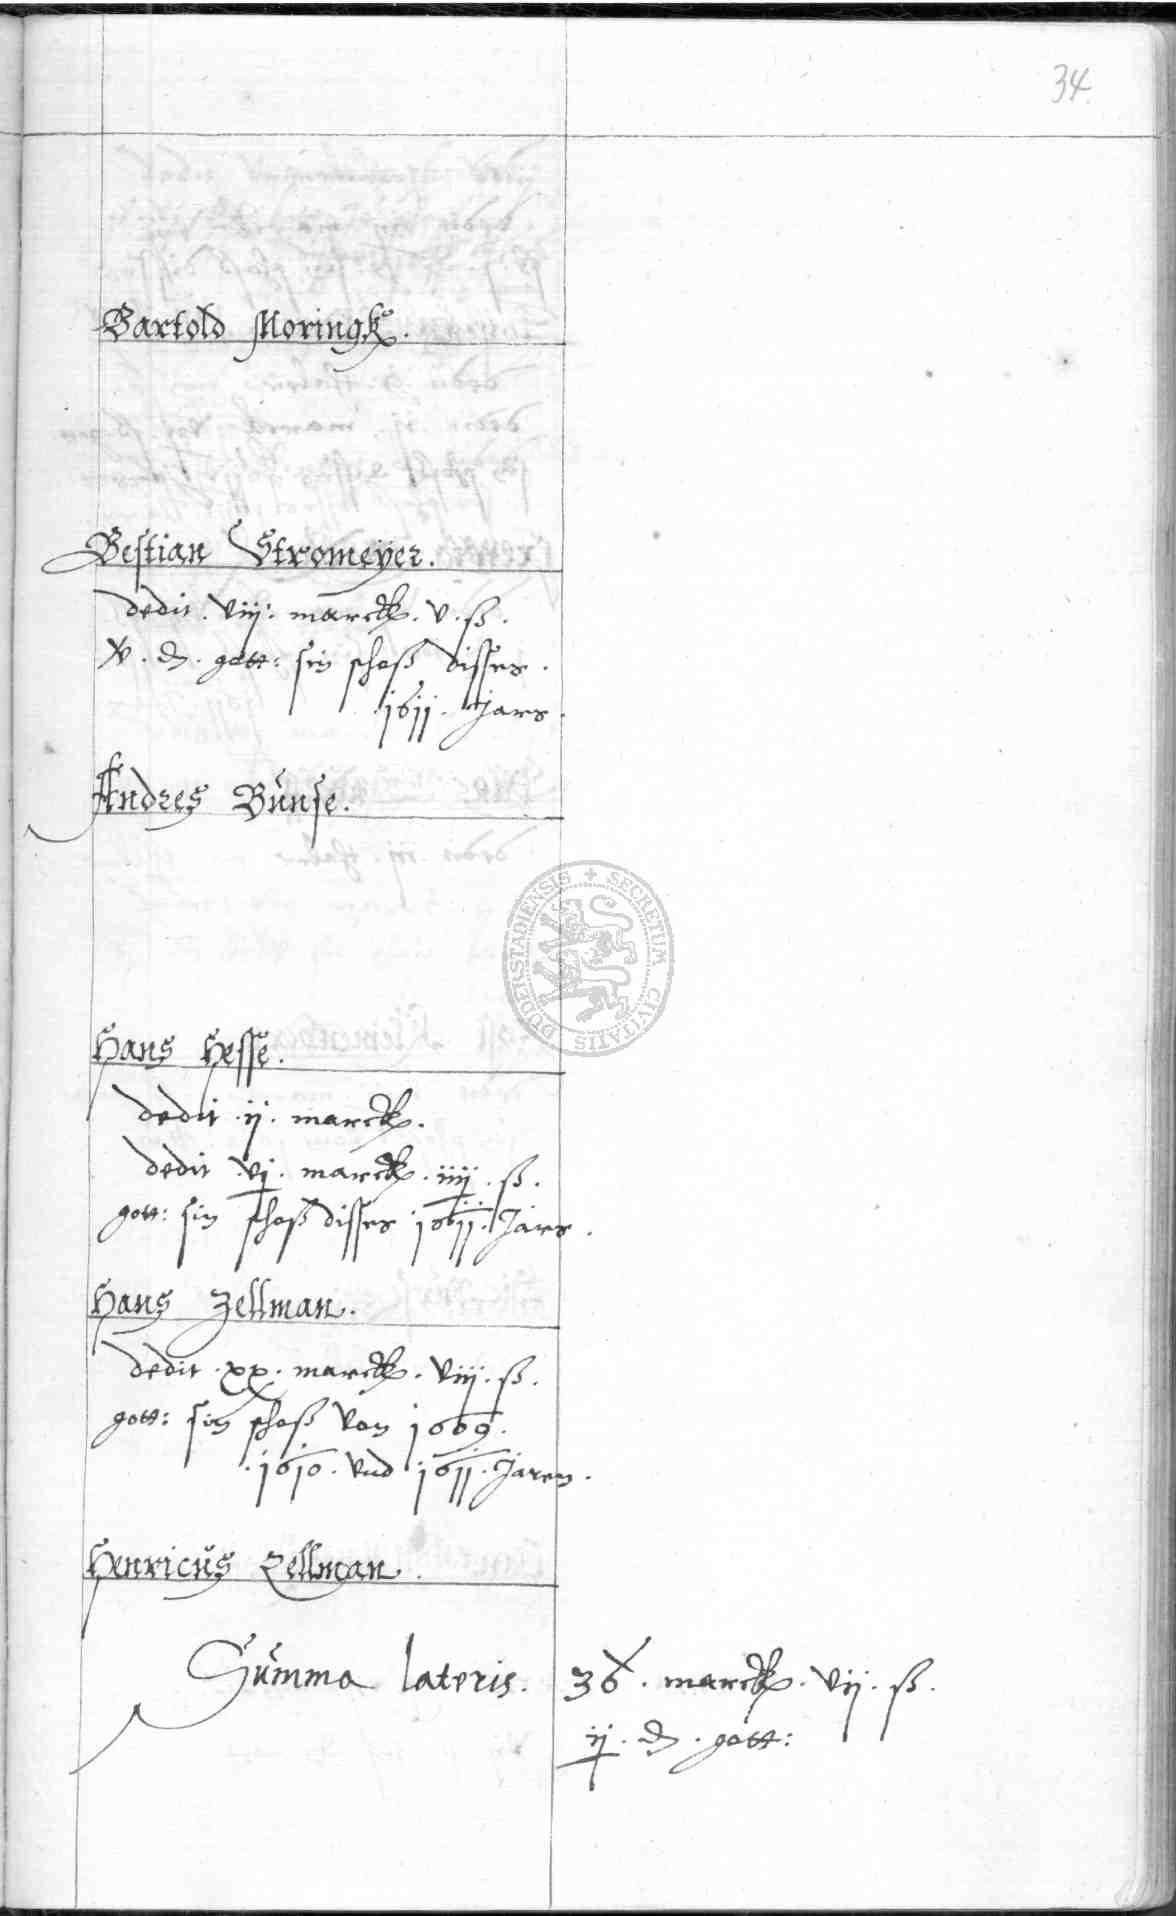 34
Bartold Moringk.
Bestian Stromeÿer.
dedit . viij: marck . v . ß .
x . d . gott: sin schoß disses .
. 1611 . Jars .
Andres Bŭnse.
Hans Hesse.
dedit . ij . marck .
dedit . vj . marck . iiij . ß .
gott: sin schoß disses 1611 . Jars .
Hans Zellman.
dedit . xx . marck . viij . ß .
gott: sin schoß von 1609 .
. 1610 . vnd 1611 . Jaren .
Henricŭs Zellman .
Sŭmma lateris . 36 . marck . vij . ß .
ij . d . gott:
SECRETUM CIVITATIS DUDERSTADIENSIS